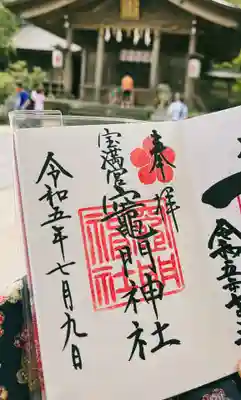 奉拝
宝満宮
竈門神社
令和五年七月九日